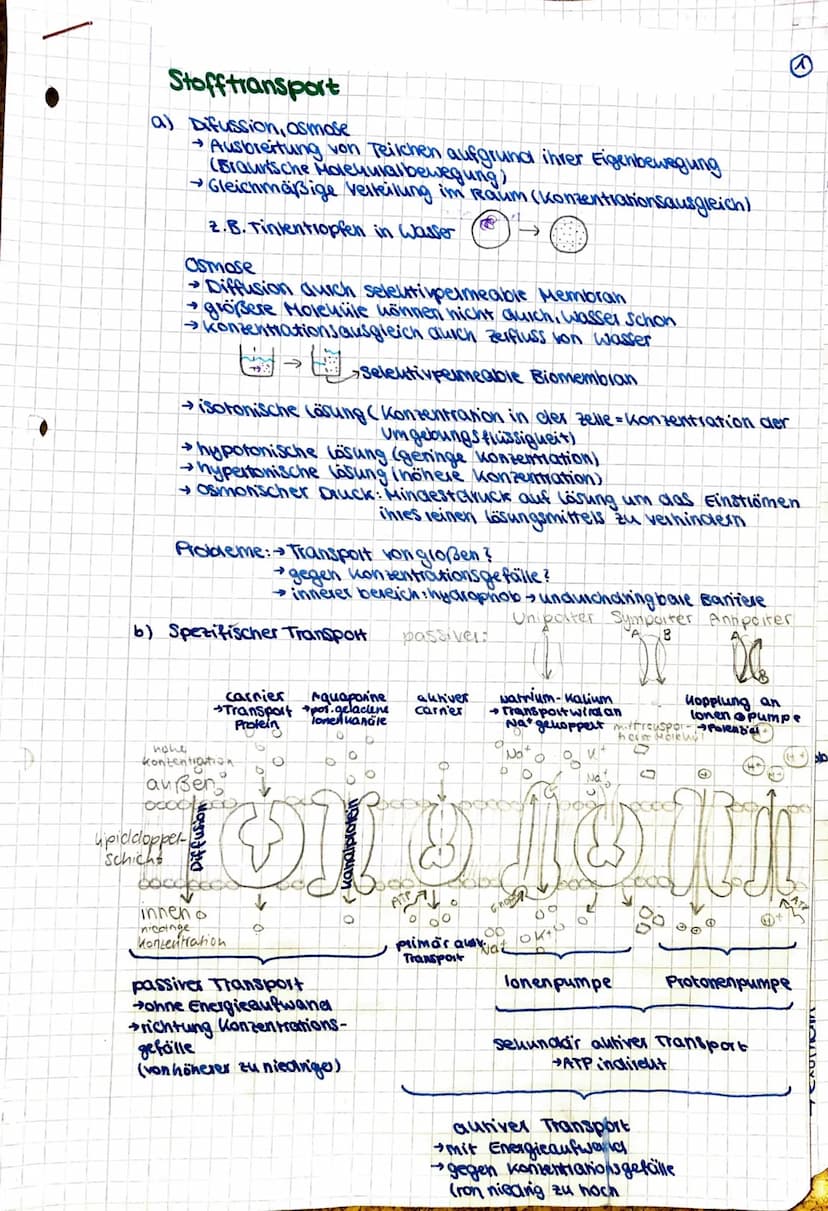 1
Stofftransport
a) Difussion, osmose
→ Ausbreitung von Teilchen aufgrund ihrer Eigenbewegung
(Braun'sche Molekularbewegung)
→ Gleichmäßige Verteilung im Raum (Konzentrationsausgleich)
z.B. Tintentropfen in Wasser
Osmose
→ Diffusion durch selektivpermeable Membran
→ größere Moleküle können nicht durch, Wasser schon
→ Konzentrationsausgleich durch Zufluss von Wasser
→ selektivpermeable Biomembran
→ isotonische Lösung (Konzentration in der Zelle = Konzentration der
Umgebungsflüssigkeit)
→ hypotonische Lösung (geringe Konzentration)
→ hypertonische Lösung (höhere Konzentration)
→ osmotischer Druck: Mindestdruck auf Lösung um das Einströmen
ihres reinen Lösungsmittels zu verhindern
Probleme: → Transport von großen?
→ gegen Konzentrationsgefälle?
→ innerer bereich: hydrophob → undurchdringbare Barriere
b) Spezifischer Transport passiver: Uniporter Symporter Antiporter
A B A B
carrier Aquaporine aktiver Natrium-Kalium Kopplung an
→ Transport → pos. geladene carrier → Transport wird an Ionen pumpe
Protein Ionenkanäle Na+ gekoppelt → Potenzial
hohe
Konzentration
außen
Na+ K+ Na+ H+ H+
Lipiddoppel-
schicht
Diffusion
Kanalprotein
innen
niedrige
Konzentration
ATP Energie ATP
Na+ K+ H+
primär aktiv.
Transport
passiver Transport Ionenpumpe Protonenpumpe
→ ohne Energieaufwand
→ richtung Konzentrations-
gefälle
(von höherer zu niedriger)
sekundär aktiver Transport
→ ATP indirekt
aktiver Transport
→ mit Energieaufwand
→ gegen Konzentrationsgefälle
(von niedrig zu hoch